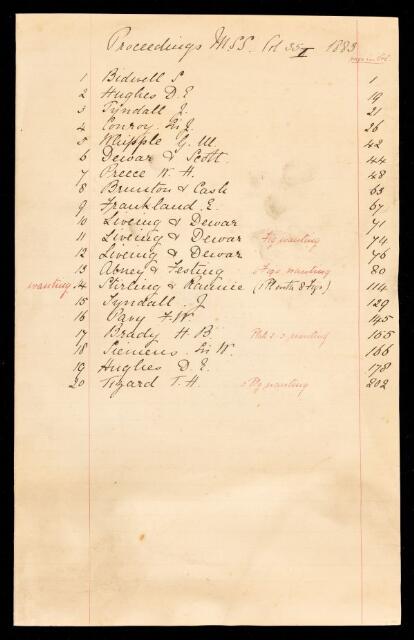 Proceedings MSS. Vol 35 II 1883
pages in Vol.
1 Bidwell S 1
2 Hughes D. E 19
3 Tyndall J. 21
4 Conroy Sir J. 26
5 Whipple G. M 42
6 Dewar & Scott. 44
7 Preece W. H. 48
8 Brunton & Cash 63
9 Frankland. E. 67
10 Liveing & Dewar 71
11 Liveing & Dewar Fig wanting 74
12 Liveing & Dewar 76
13 Abney & Festing Figs. wanting 80
wanting 14 Stirling & Rannie (1 Pl with 8 Figs) 114
15 Tyndall. J 129
16 Pavy F. W. 145
17 Brady H B wanting 155
18 Siemens. Sir W. 166
19 Hughes D. E. 178
20 Tizard T. H. wanting 202